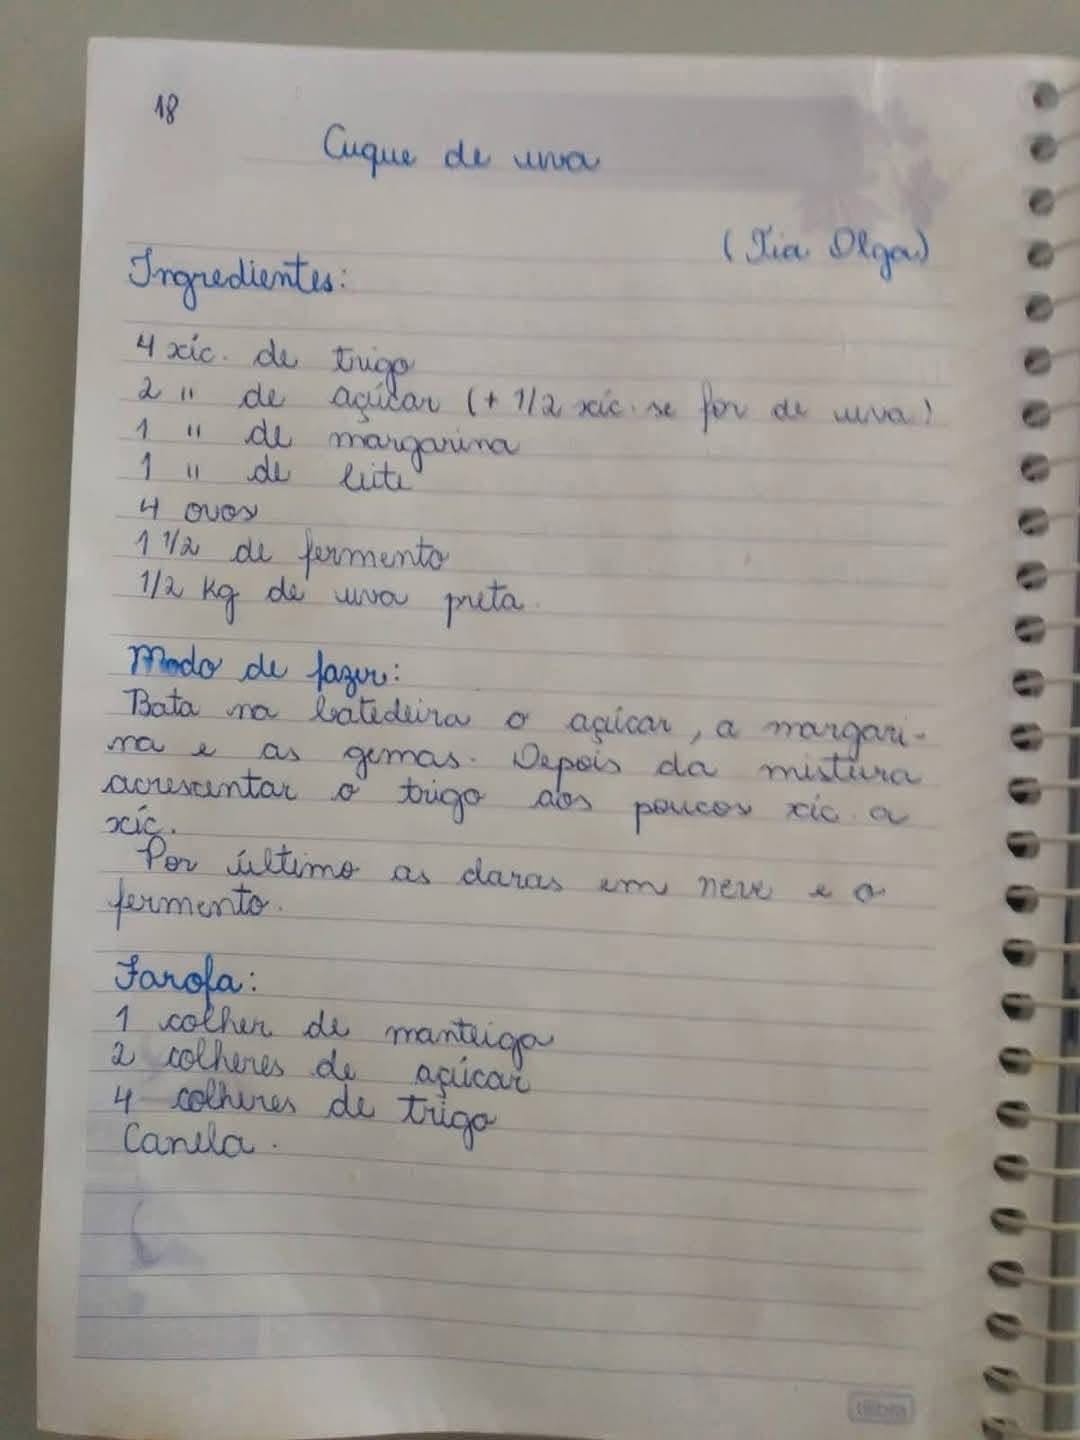 18
Cuque de uva
(Tia Olga)
Ingredientes:
4 xíc. de trigo
2 " de açúcar (+ 1/2 xíc. se for de uva)
1 " de margarina
1 " de leite
4 ovos
1 1/2 de fermento
1/2 kg de uva preta.
Modo de fazer:
Bata na batedeira o açúcar, a margari-
na e as gemas. Depois da mistura
acrescentar o trigo aos poucos xíc. a
xíc.
Por último as claras em neve e o
fermento.
Farofa:
1 colher de manteiga
2 colheres de açúcar
4 colheres de trigo
Canela.
tilibra